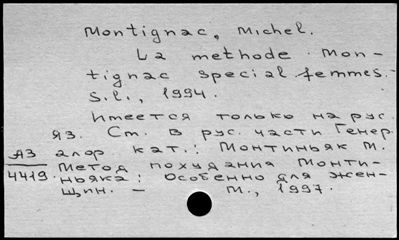 Montignac, Michel.
La methode Mon-
tignac special femmes. -
S.l., 1994.
Имеется только на рус.
яз. См. в рус. части Генер.
алф. кат.: Монтиньяк М.
АЗ
4419
Метод похудания Монти-
ньяка: Особенно для жен-
щин. - М., 1997.